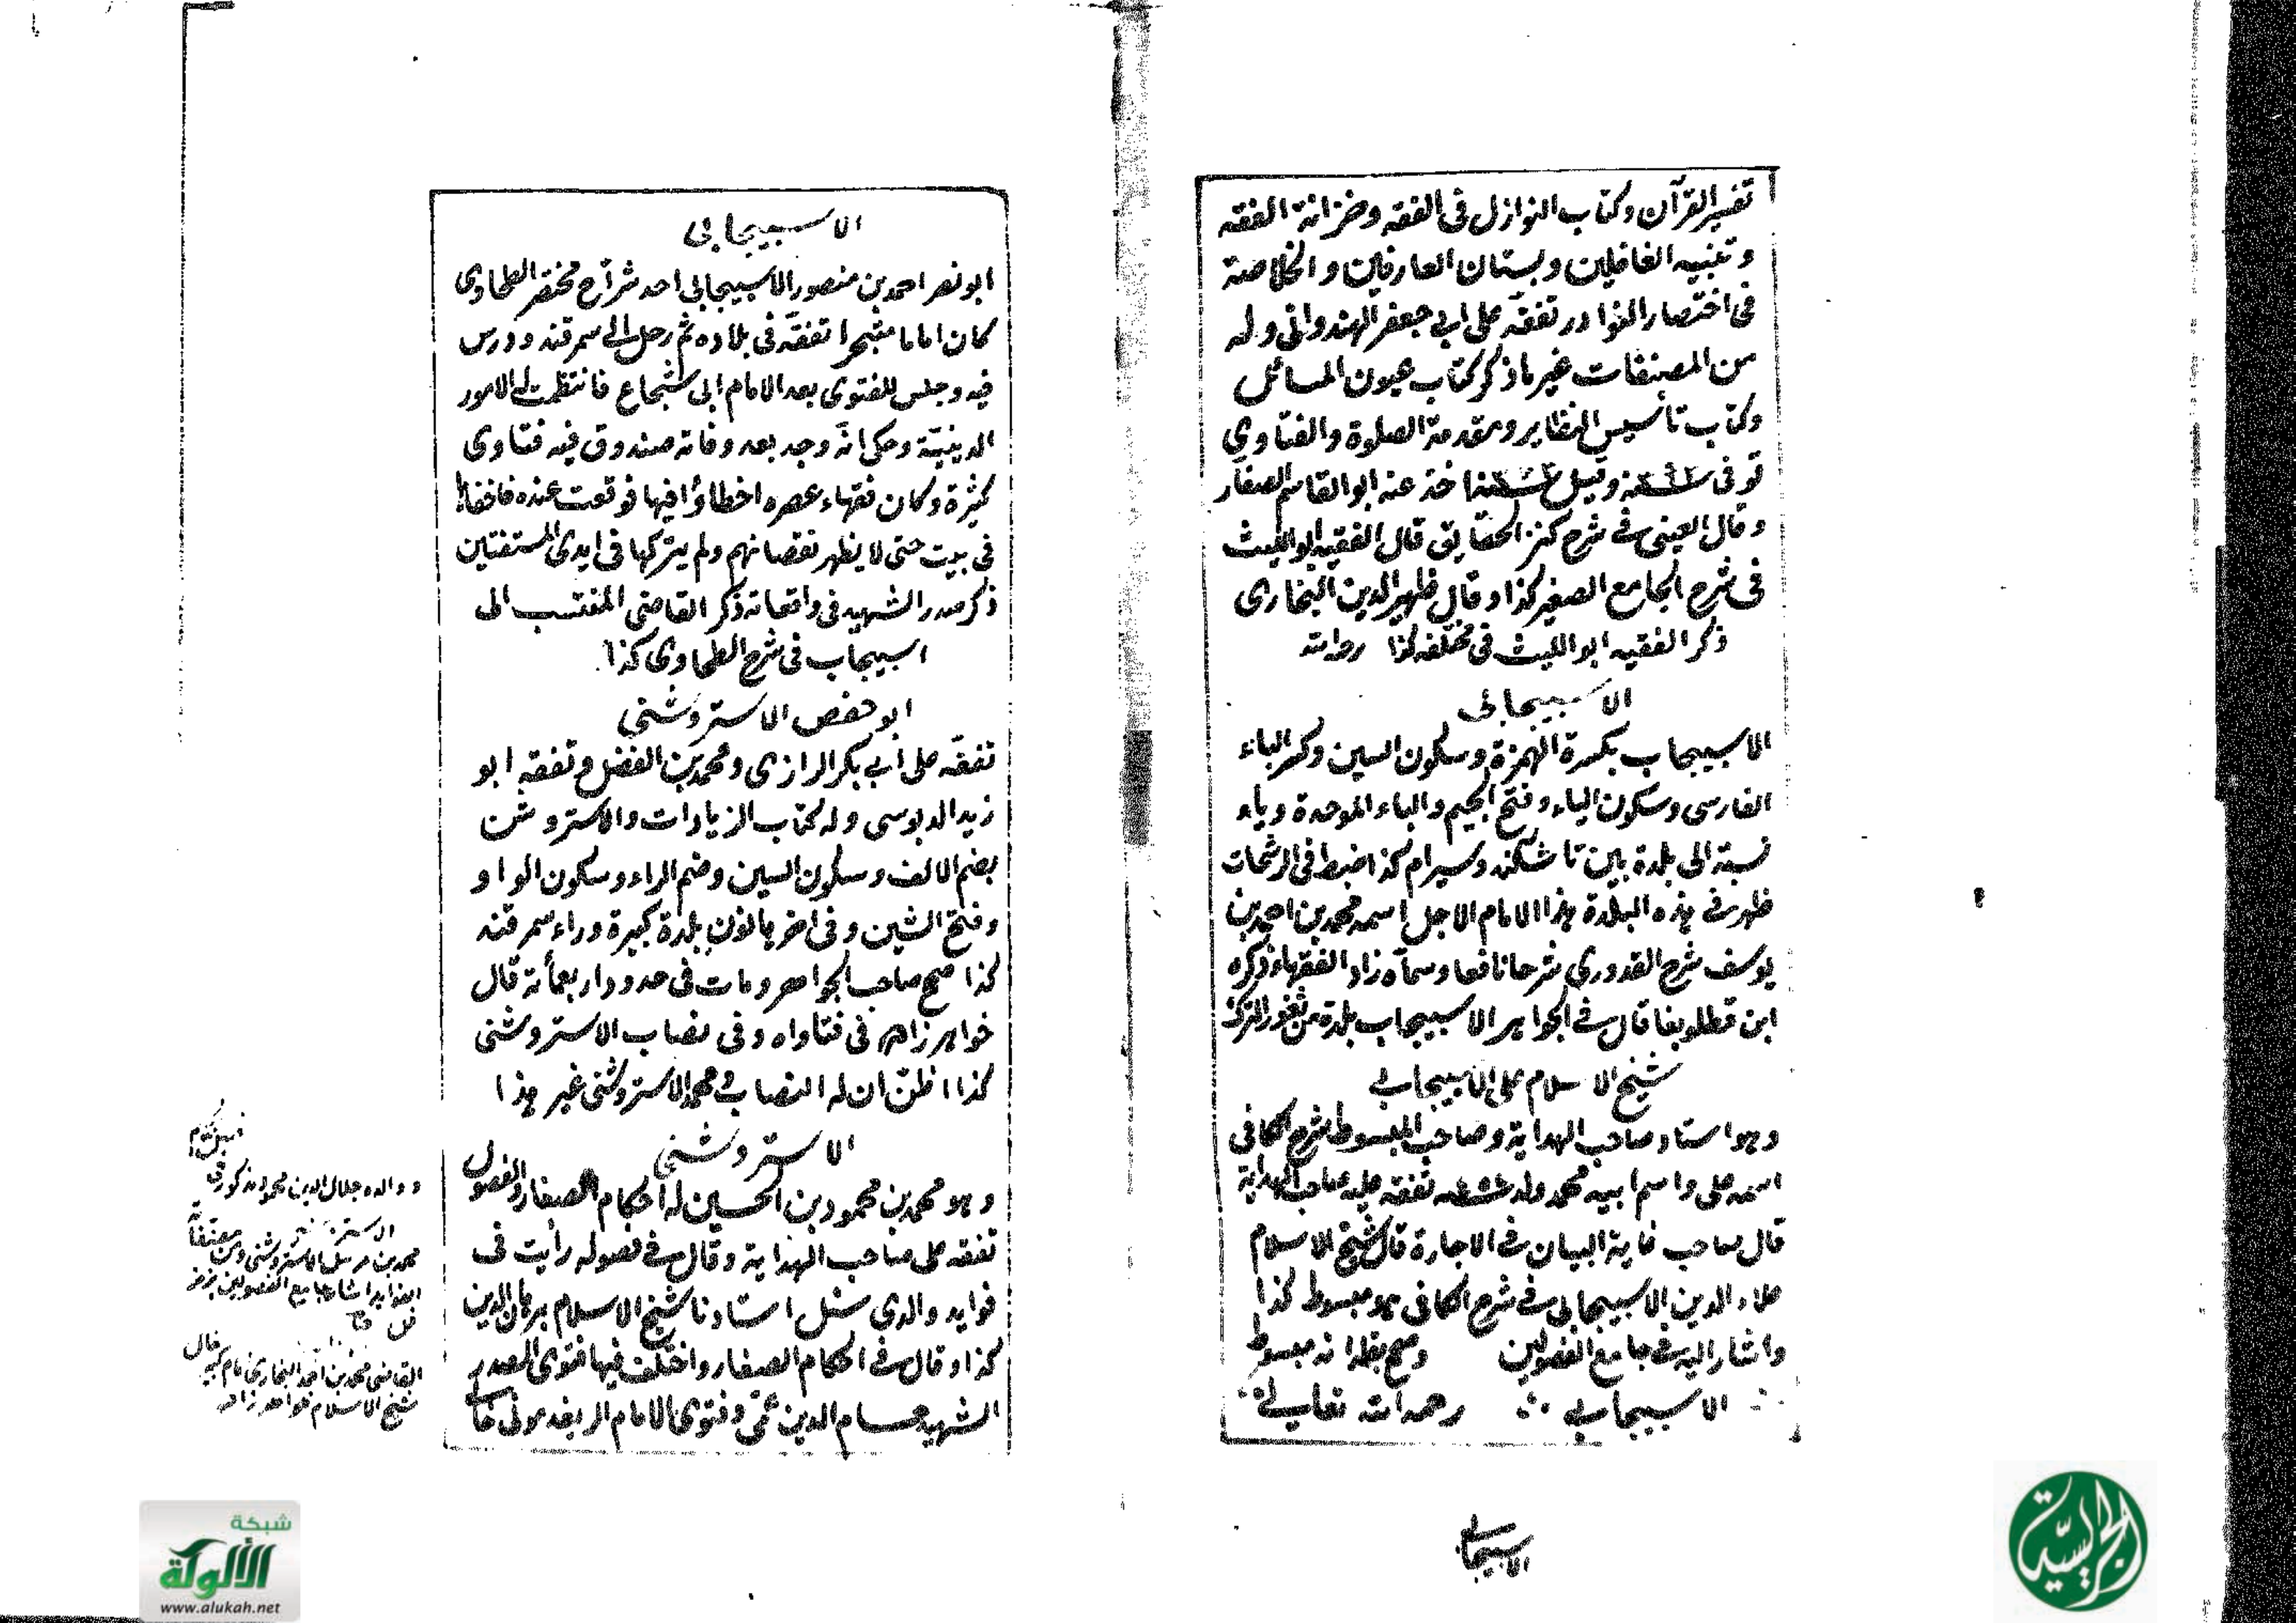 تفسير القرآن وكتاب النوازل فى الفقه وخزانة الفقه
وتنبيه الغافلين وبستان العارفين والخلاصة
فى اختصار النوادر تفقه على ابى جعفر الهندوانى وله
من المصنفات غير ما ذكر كتاب عيون المسائل
وكتاب تأسيس النظاير ومقدمة الصلوة والفتاوى
توفى سنة وقيل سنة اخذ عنه ابو القاسم الصفار
وقال العينى فى شرح كنز الحقايق قال الفقيه ابو الليث
فى شرح الجامع الصغير كذا وقال ظهير الدين البخارى
ذكر الفقيه ابو الليث فى مختلفه كذا رحمه الله
الاسبيجابى
الاسبيجاب بكسرة الهمزة وسكون السين وكسر الباء
الفارسى وسكون الياء وفتح الجيم والباء الموحدة وياء
نسبة الى بلدة بين تاشكند وسيرام كذا ضبط فى الرشحات
ظهر فى هذه البلدة هذا الامام الاجل اسمه محمد بن احمد بن
يوسف شرح القدورى شرحا نافعا وسماه زاد الفقهاء ذكره
ابن قطلوبغا قال فى الجواهر الاسبيجاب بلدة من ثغور الترك
شيخ الاسلام على الاسبيجابى
وهو استاد صاحب الهداية وصاحب المبسوط شرح الكافى
اسمه على واسم ابيه محمد ولد تفقه عليه صاحب الهداية
قال صاحب غاية البيان فى الاجارة قال شيخ الاسلام
علاء الدين الاسبيجابى فى شرح الكافى هو مبسوط كذا
واشار اليه فى جامع الفصولين وصح بظ انه مبسوط
الاسبيجابى رحمه الله تعالى
الاسبيجابى
الاسبيجابى
ابو نصر احمد بن منصور الاسبيجابى احد شراح مختصر الطحاوى
كان اماما متبحرا تفقه فى بلاده ثم رحل الى سمرقند ودرس
فيه وجلس للفتوى بعد الامام ابى شجاع فانتظمت له الامور
الدينية وحكى انه وجد بعد وفاته صندوق فيه فتاوى
كثيرة وكان فقهاء عصره اخطاؤا فيها فوقعت عنده فاخفاها
فى بيت حتى لا يظهر نقصانهم ولم يتركها فى ايدى المستفتين
ذكر صدر الشهيد فى واقعاته ذكر القاضى المنتسب الى
اسبيجاب فى شرح الطحاوى كذا
ابو حفص الاستروشنى
تفقه على ابى بكر الرازى ومحمد بن الفضل وتفقه ابو
زيد الدبوسى وله كتاب الزيادات والاستروشن
بضم الالف وسكون السين وضم الراء وسكون الواو
وفتح الشين وفى اخرها نون بلدة كبيرة وراء سمرقند
كذا صح صاحب الجواهر ومات فى حدود اربعمأنة قال
خواهر زاده فى فتاواه وفى نصاب الاستروشنى
كذا اظن ان له النصاب محمد الاستروشنى غير هذا
الاستروشنى
وهو محمد بن محمود بن الحسين له احكام الصغار والفصول
تفقه على صاحب الهداية وقال فى فصوله رأيت فى
فوايد والدى سئل استادنا شيخ الاسلام برهان الدين
كذا وقال فى احكام الصغار واختلف فيها فتوى الصدر
الشهيد حسام الدين عمى وفتوى الامام
ووالده جلال الدين محمود مذكور فى
محمد بن الاستروشنى
جامع الفصولين
القاضى محمد بن احمد البخارى
شيخ الاسلام خواهر زاده
شبكة
الألوكة
www.alukah.net